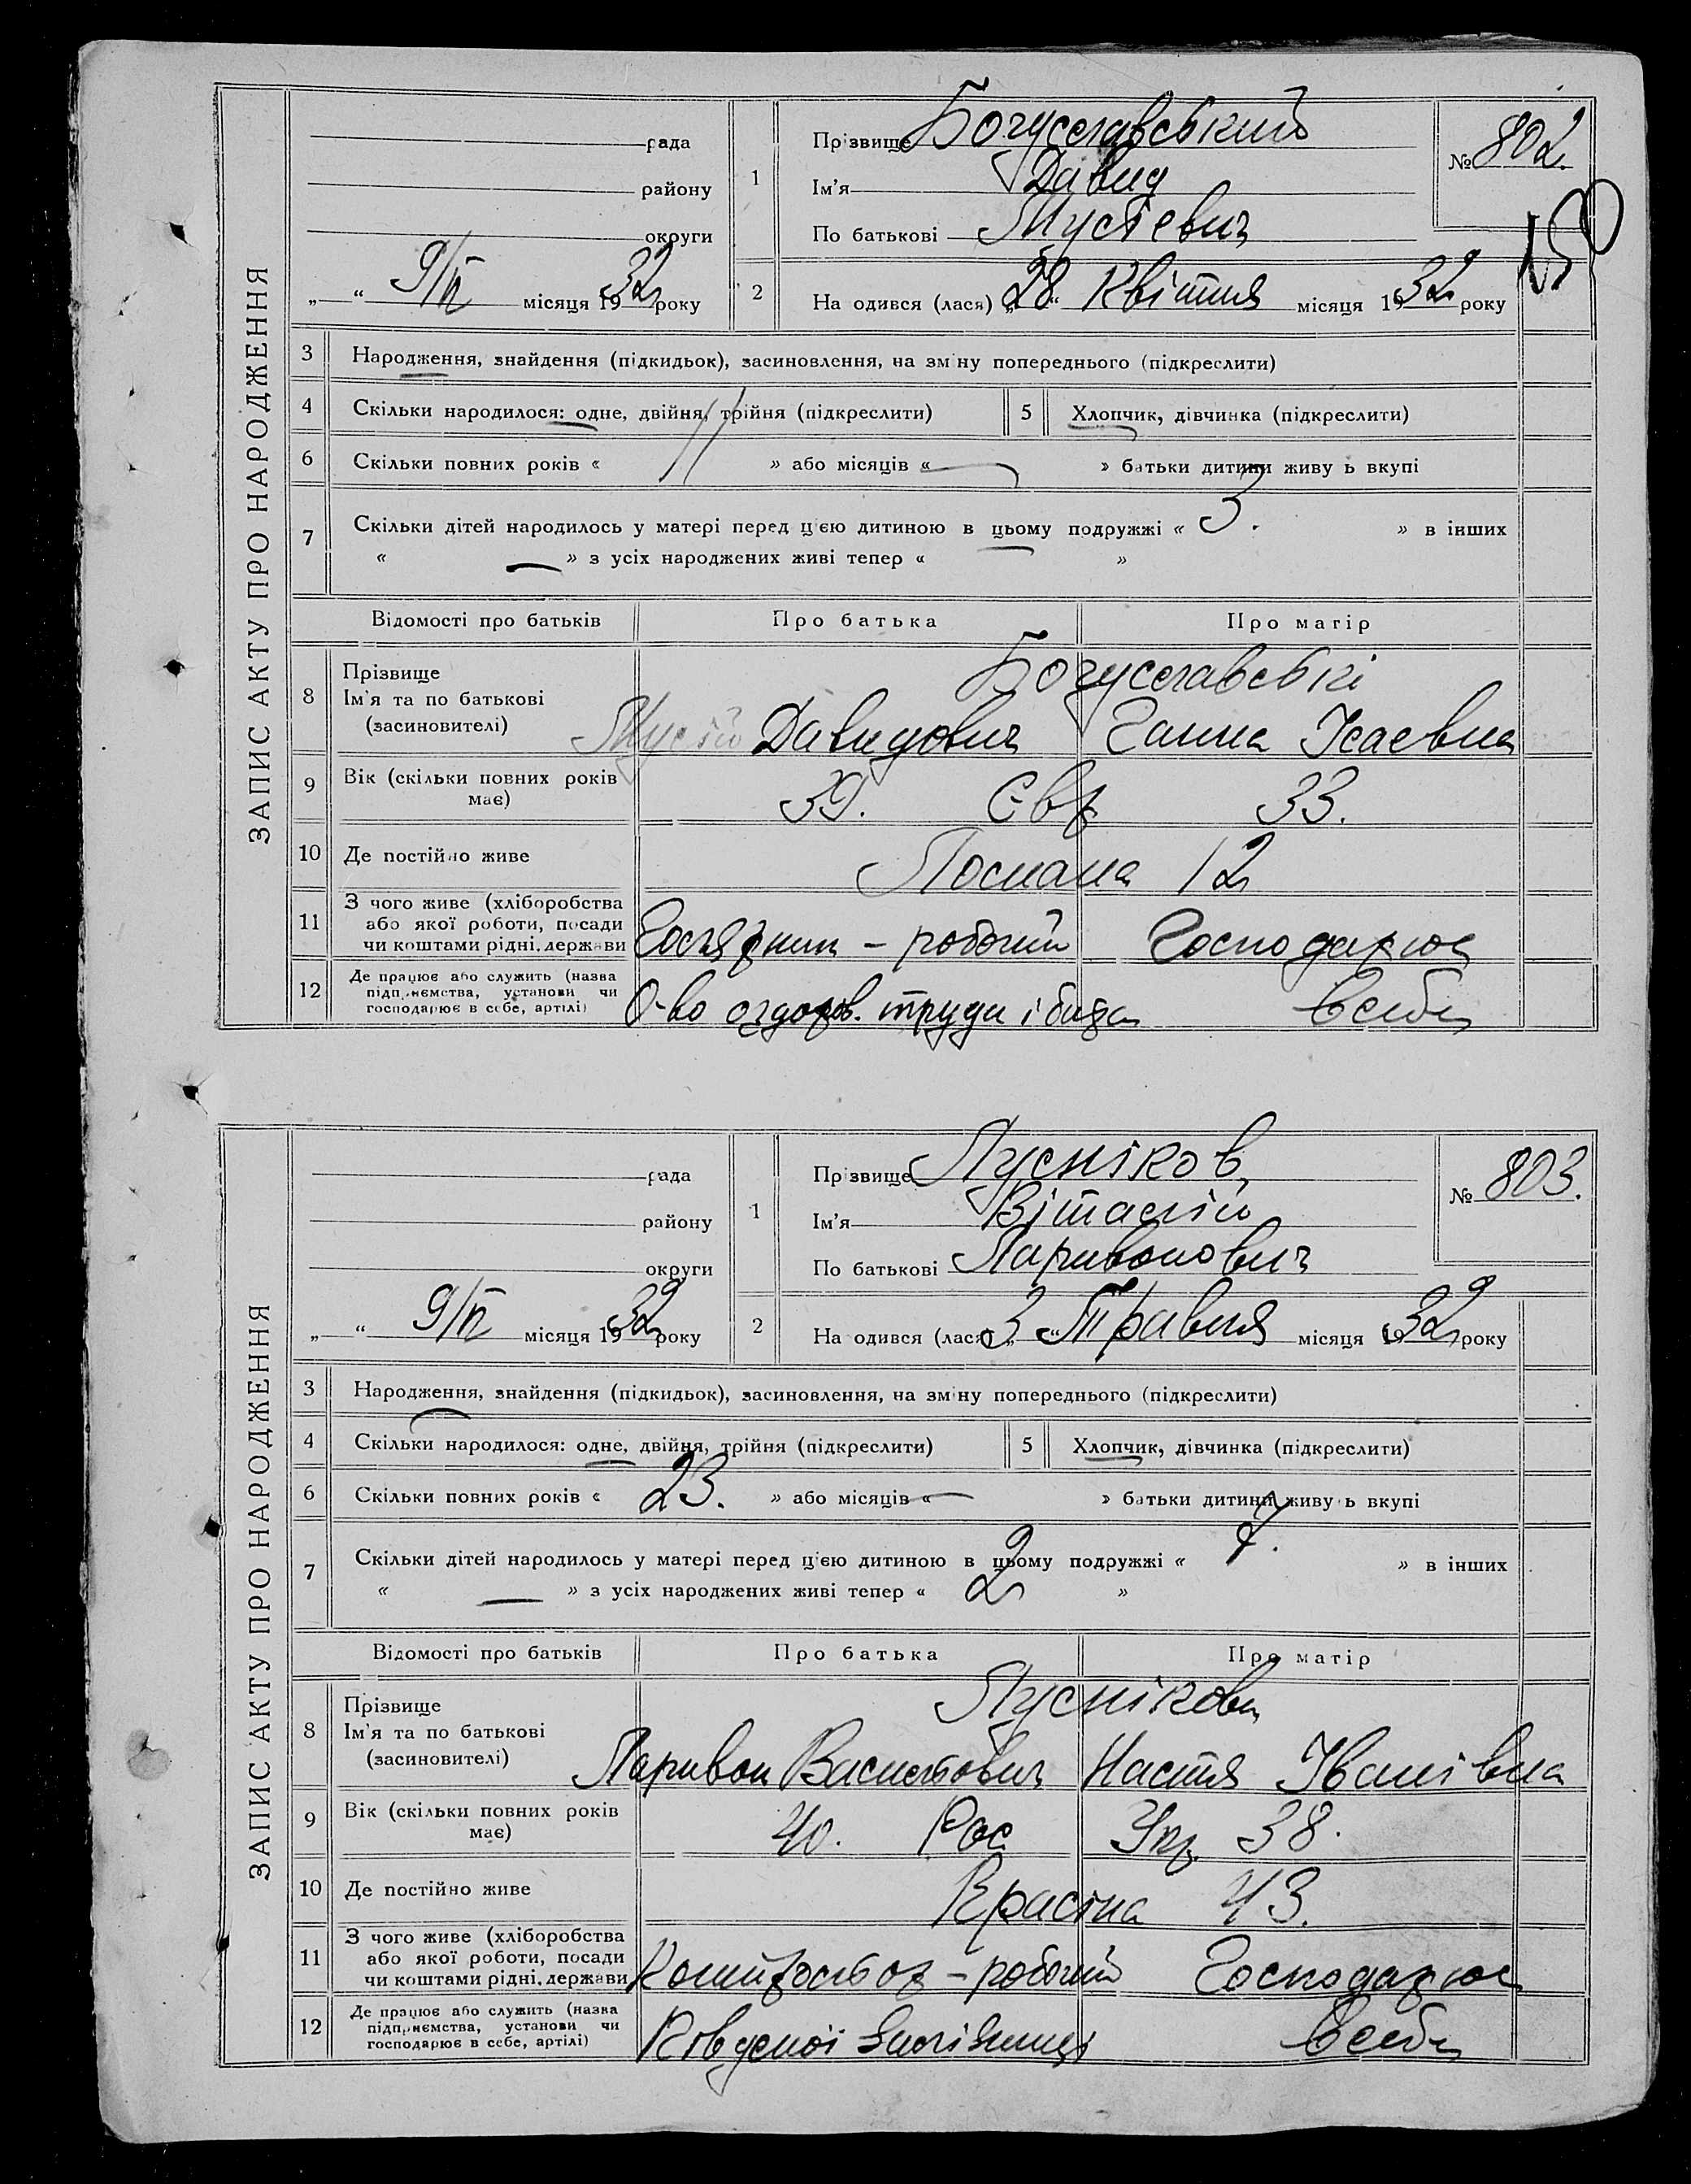 ЗАПИС АКТУ ПРО НАРОДЖЕННЯ
рада
району
округи
„ “ 9/V місяця 1932 року
1
Прізвище Богуславський
Ім'я Давид
По батькові Мусієвич
№ 802.
2
На одився (лася) „28“ Квітня місяця 1932 року
3 Народження, знайдення (підкидьок), засиновлення, на зміну попереднього (підкреслити)
4 Скільки народилося: одне, двійня, трійня (підкреслити)
5 Хлопчик, дівчинка (підкреслити)
6 Скільки повних років « 11 » або місяців « — » батьки дитини живу ь вкупі
7 Скільки дітей народилось у матері перед цією дитиною в цьому подружжі « 3. » в інших
« — » з усіх народжених живі тепер « »
Відомості про батьків Про батька Про матір
8 Прізвище
Ім'я та по батькові
(засиновителі)
Богуславські
Мусій Давидович Ганна Ісаевна
9 Вік (скільки повних років має)
39. Євр 33.
10 Де постійно живе
12
11 З чого живе (хліборобства
або якої роботи, посади
чи коштами рідні, держави
робочий Господарює
12 Де працює або служить (назва
підприємства, установи чи
господарює в себе, артілі)
О-во оздоров. труда і быта в себе
ЗАПИС АКТУ ПРО НАРОДЖЕННЯ
рада
району
округи
„ “ 9/V місяця 1932 року
1
Прізвище Лусніков
Ім'я Віталій
По батькові Ларивонович
№ 803.
2
На одився (лася) „3“ Травня місяця 1932 року
3 Народження, знайдення (підкидьок), засиновлення, на зміну попереднього (підкреслити)
4 Скільки народилося: одне, двійня, трійня (підкреслити)
5 Хлопчик, дівчинка (підкреслити)
6 Скільки повних років « 23. » або місяців « — » батьки дитини живу ь вкупі
7 Скільки дітей народилось у матері перед цією дитиною в цьому подружжі « 7. » в інших
« — » з усіх народжених живі тепер « 2 »
Відомості про батьків Про батька Про матір
8 Прізвище
Ім'я та по батькові
(засиновителі)
Луснікови
Ларивон Васильович Настя Іванівна
9 Вік (скільки повних років має)
40. Рос Укр. 38.
10 Де постійно живе
Красіна 43.
11 З чого живе (хліборобства
або якої роботи, посади
чи коштами рідні, держави
робочий Господарює
12 Де працює або служить (назва
підприємства, установи чи
господарює в себе, артілі)
в себе